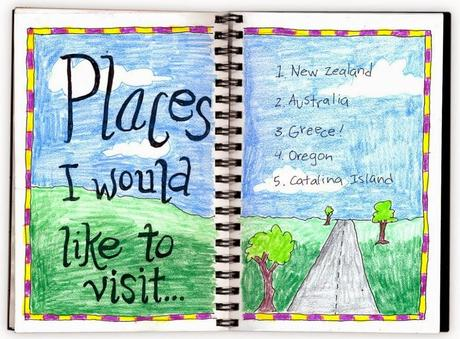 Places
I would
like to
visit...
1. New Zealand
2. Australia
3. Greece!
4. Oregon
5. Catalina Island